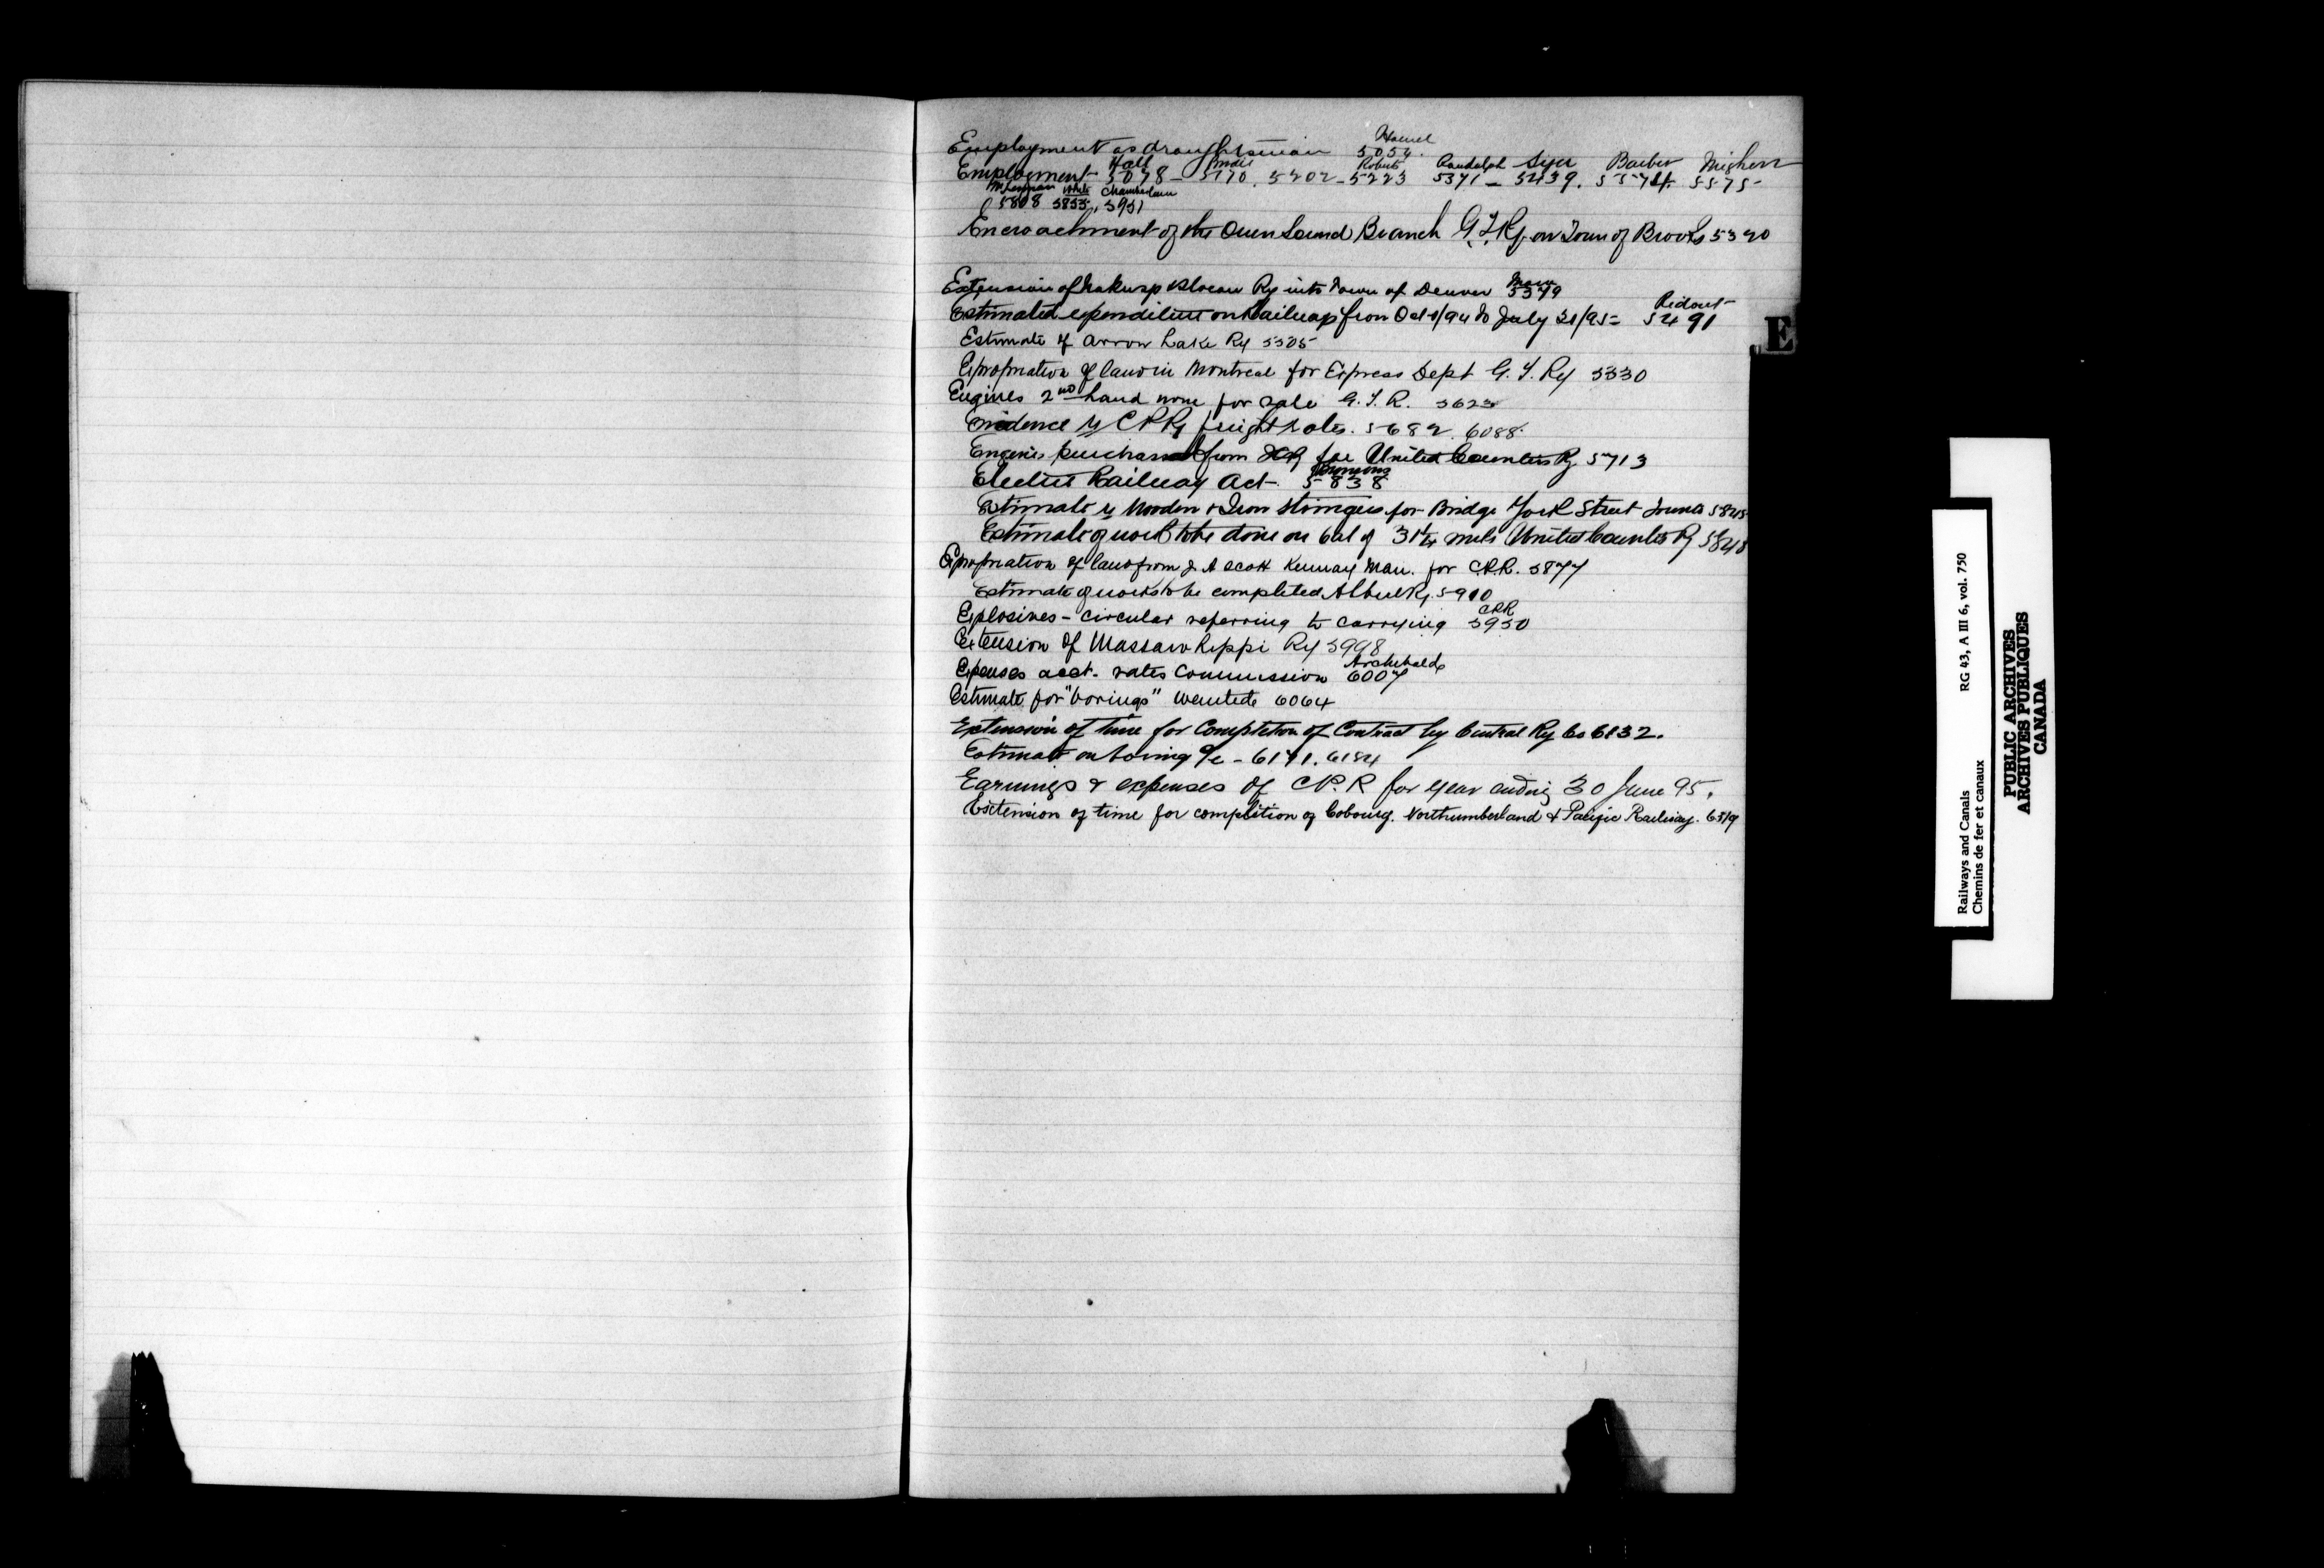 Hamel
Employment as draughtsman 5054.
Hall Roberts Randolph Barber
Employment 5078 - 5170. 5202 - 5223 5371 - 5439. 5574 5575
White Chamberlain
5808 5855, 5951
Encroachment of the Owen Sound Branch G.T.Ry on Town of Brooks 5390
Extension of Nakusp & Slocan Ry into Town of Denver 5379
Ridout
Estimated expenditure on Railways from Oct 1/94 to July 31/95 = 5491
Estimate of Arrow Lake Ry 5505
E
Expropriation of land in Montreal for Express Dept G. T. Ry 5530
Engines 2nd hand none for sale G. T. R. 5623
Evidence re C P Ry freight rates. 5682. 6088.
Engines purchased from ICR for United Counties Ry 5713
Bronsons
Electric Railway Act - 5838
Estimate re Wooden & Iron stringers for Bridge York Street 5845
Estimate of work to be done on bal of 31 1/4 mls United Counties Ry 5848
Expropriation of land from J. A Scott Kemnay Man. for C.P.R. 5877
Estimate of works to be completed Albert Ry. 5910
CPR
Explosives - circular referring to carrying 5930
Extension of Massawippi Ry 5998
Archibald
Expenses acct. rates Commission 6007
Estimate for "borings" wanted 6064
Extension of time for Completion of Contract by Central Ry Co 6132.
Estimate on boring &c - 6171. 6184
Earnings & expenses of C.P.R for year ending 30 June 95.
Extension of time for completion of Cobourg. Northumberland & Pacific Railway. 6519
Railways and Canals RG 43, A III 6, vol. 750
Chemins de fer et canaux
PUBLIC ARCHIVES
ARCHIVES PUBLIQUES
CANADA